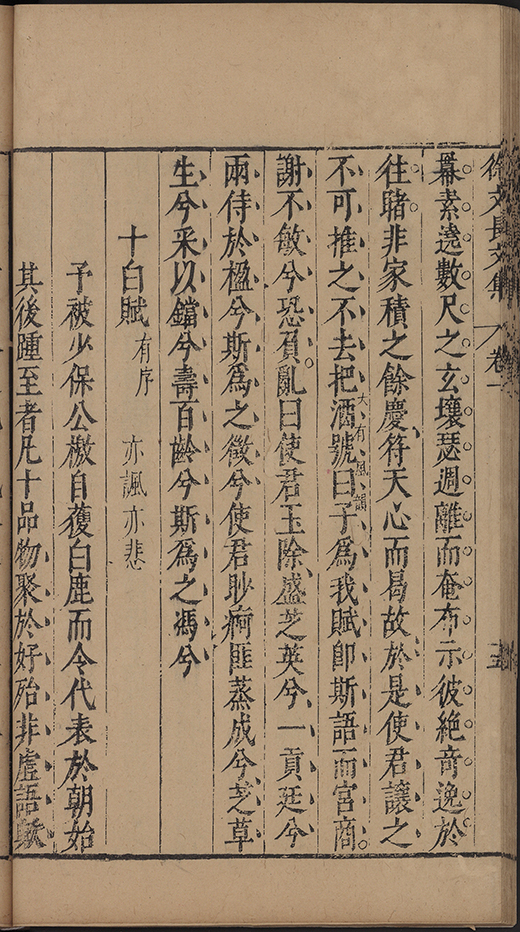 徐文長文集 卷一 五
幕素遶數尺之玄壤瑟週離而奄布示彼絶音逸於
往賭非家積之餘慶符天心而曷故於是使君讓之
不可推之不去把酒號曰子為我賦卽斯語而宮商
大有風韻
謝不敏兮恐負亂曰使君玉除盛芝英兮一貢廷兮
兩侍於楹兮斯為之徵兮使君眇痾匪蒸成兮芝草
生兮采以鐺兮壽百齡兮斯為之馮兮
十白賦 有序 亦諷亦悲
予被少保公檄自獲白鹿而令代表於朝始
其後踵至者凡十品物聚於好殆非虛語歟